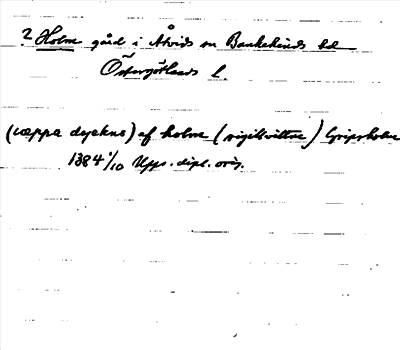 ? Holm gård i Åtvids sn Bankekinds hd
Östergötlands l.
(wæppa dyekns) af holm (sigillvittne) Gripsholm
1384 4/10 Upps. dipl. orig.